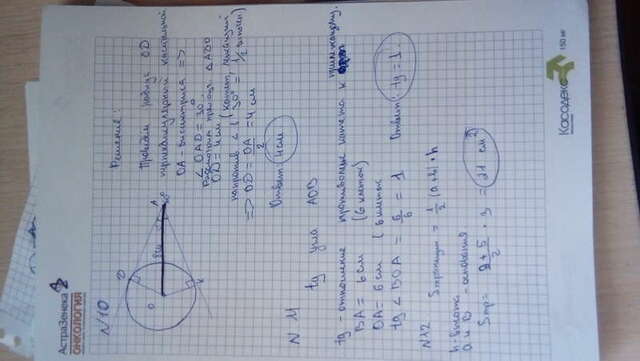 АстраЗенека
ОНКОЛОГИЯ
N10
Решение:
O
8см
A
Проведём радиус OD
перпендикулярный касательной
OA - биссектриса =>
∠OAD = 30°
Рассмотрим прямоуг. △ADO
OD = 4 см (катет, лежащий
напротив ∠ 30° = 1/2 гипотен)
=> OD = OA/2 = 4 см
Ответ: 4 см
N 11
tg угла AOB
tg - отношение противолеж катета к прилежащему.
BA = 6 см (6 клеток)
OA = 6 см (6 клеток
tg ∠BOA = 6/6 = 1
Ответ: tg = 1.
N12
Sтрапеции = 1/2 (a+b) · h
h - высота
a и b - основания
Sтр = 9+5/2 · 3 = 21 см²
Касодекс
150 мг